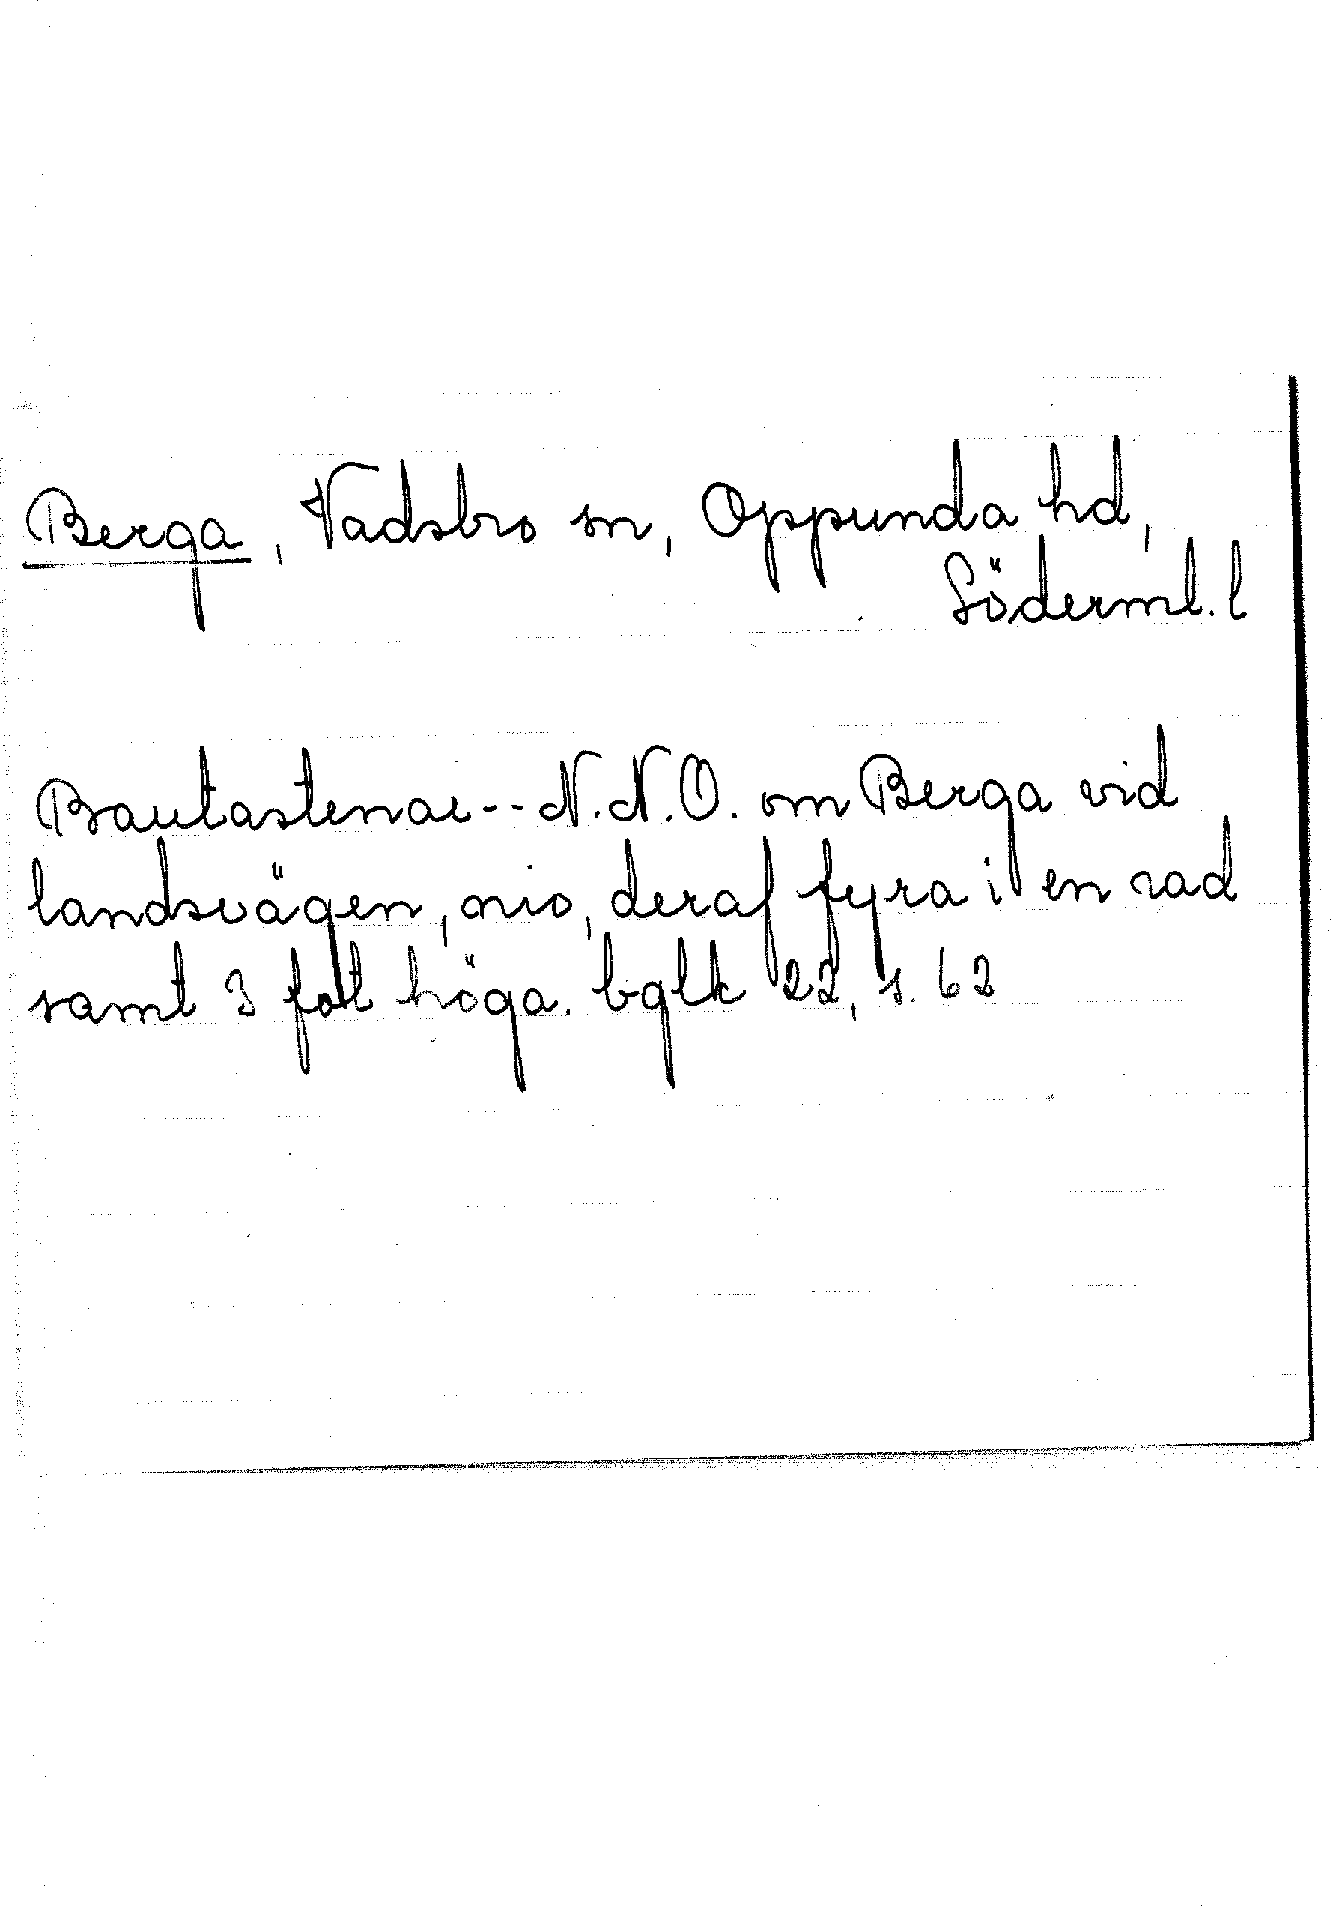 Berga, Vadsbro sn, Oppunda hd,
Söderml. l
Bautastenar -- N.N.O. om Berga vid
landsvägen, nio, deraf fyra i en rad
samt 3 fot höga. bglk 22, s. 62